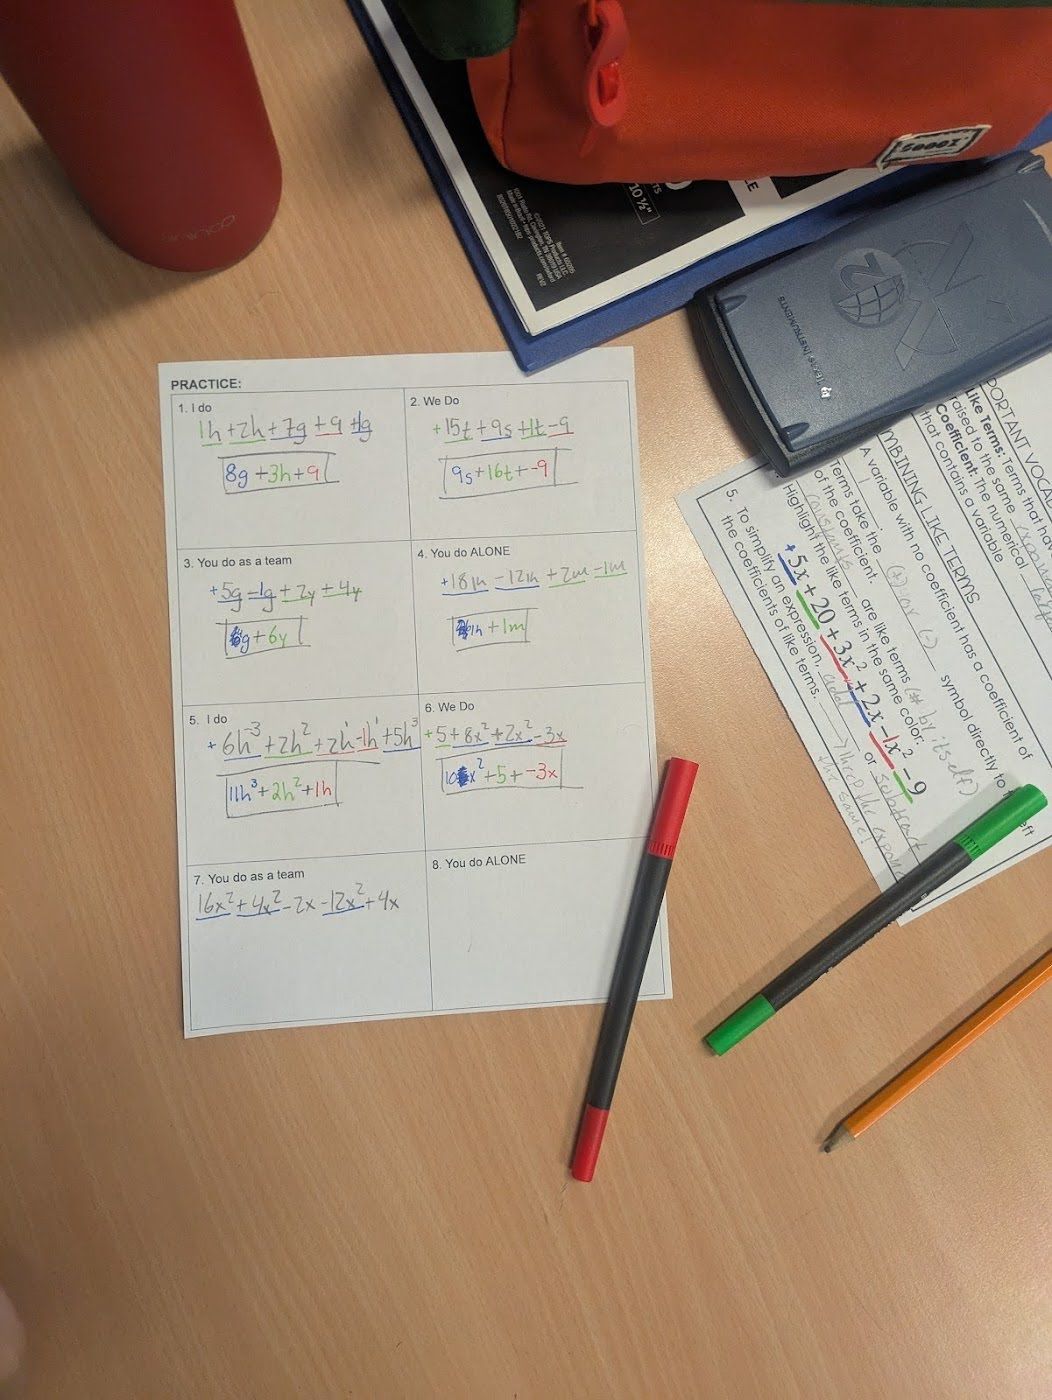 PRACTICE:
1. I do
1h +2h +7g +9 +1g
8g +3h +9
2. We Do
+15t +9s +1t -9
9s +16t + -9
3. You do as a team
+5g -1g +2y +4y
g + 6y
4. You do ALONE
+18h -12h +2m -1m
h + 1m
5. I do
+ 6h³ +2h² +2h¹ -1h¹ +5h³
11h³ +2h² +1h
6. We Do
+5 +8x² +2x² -3x
10x² +5 + -3x
7. You do as a team
16x² + 4x² -2x -12x² + 4x
8. You do ALONE
TEXAS INSTRUMENTS
Like Terms: Terms that
raised to the same
Coefficient: The numerical
that contains a variable
COMBINING LIKE TERMS
A variable with no coefficient has a coefficient of
1
Terms take the (+) or (-) symbol directly to
of the coefficient.
constants are like terms
Highlight the like terms in the same color:
+5x + 20 + 3x² + 2x - 1x² - 9
5. To simplify an expression, add or subtract
the coefficients of like terms.
the same!
10 ½"
REV2